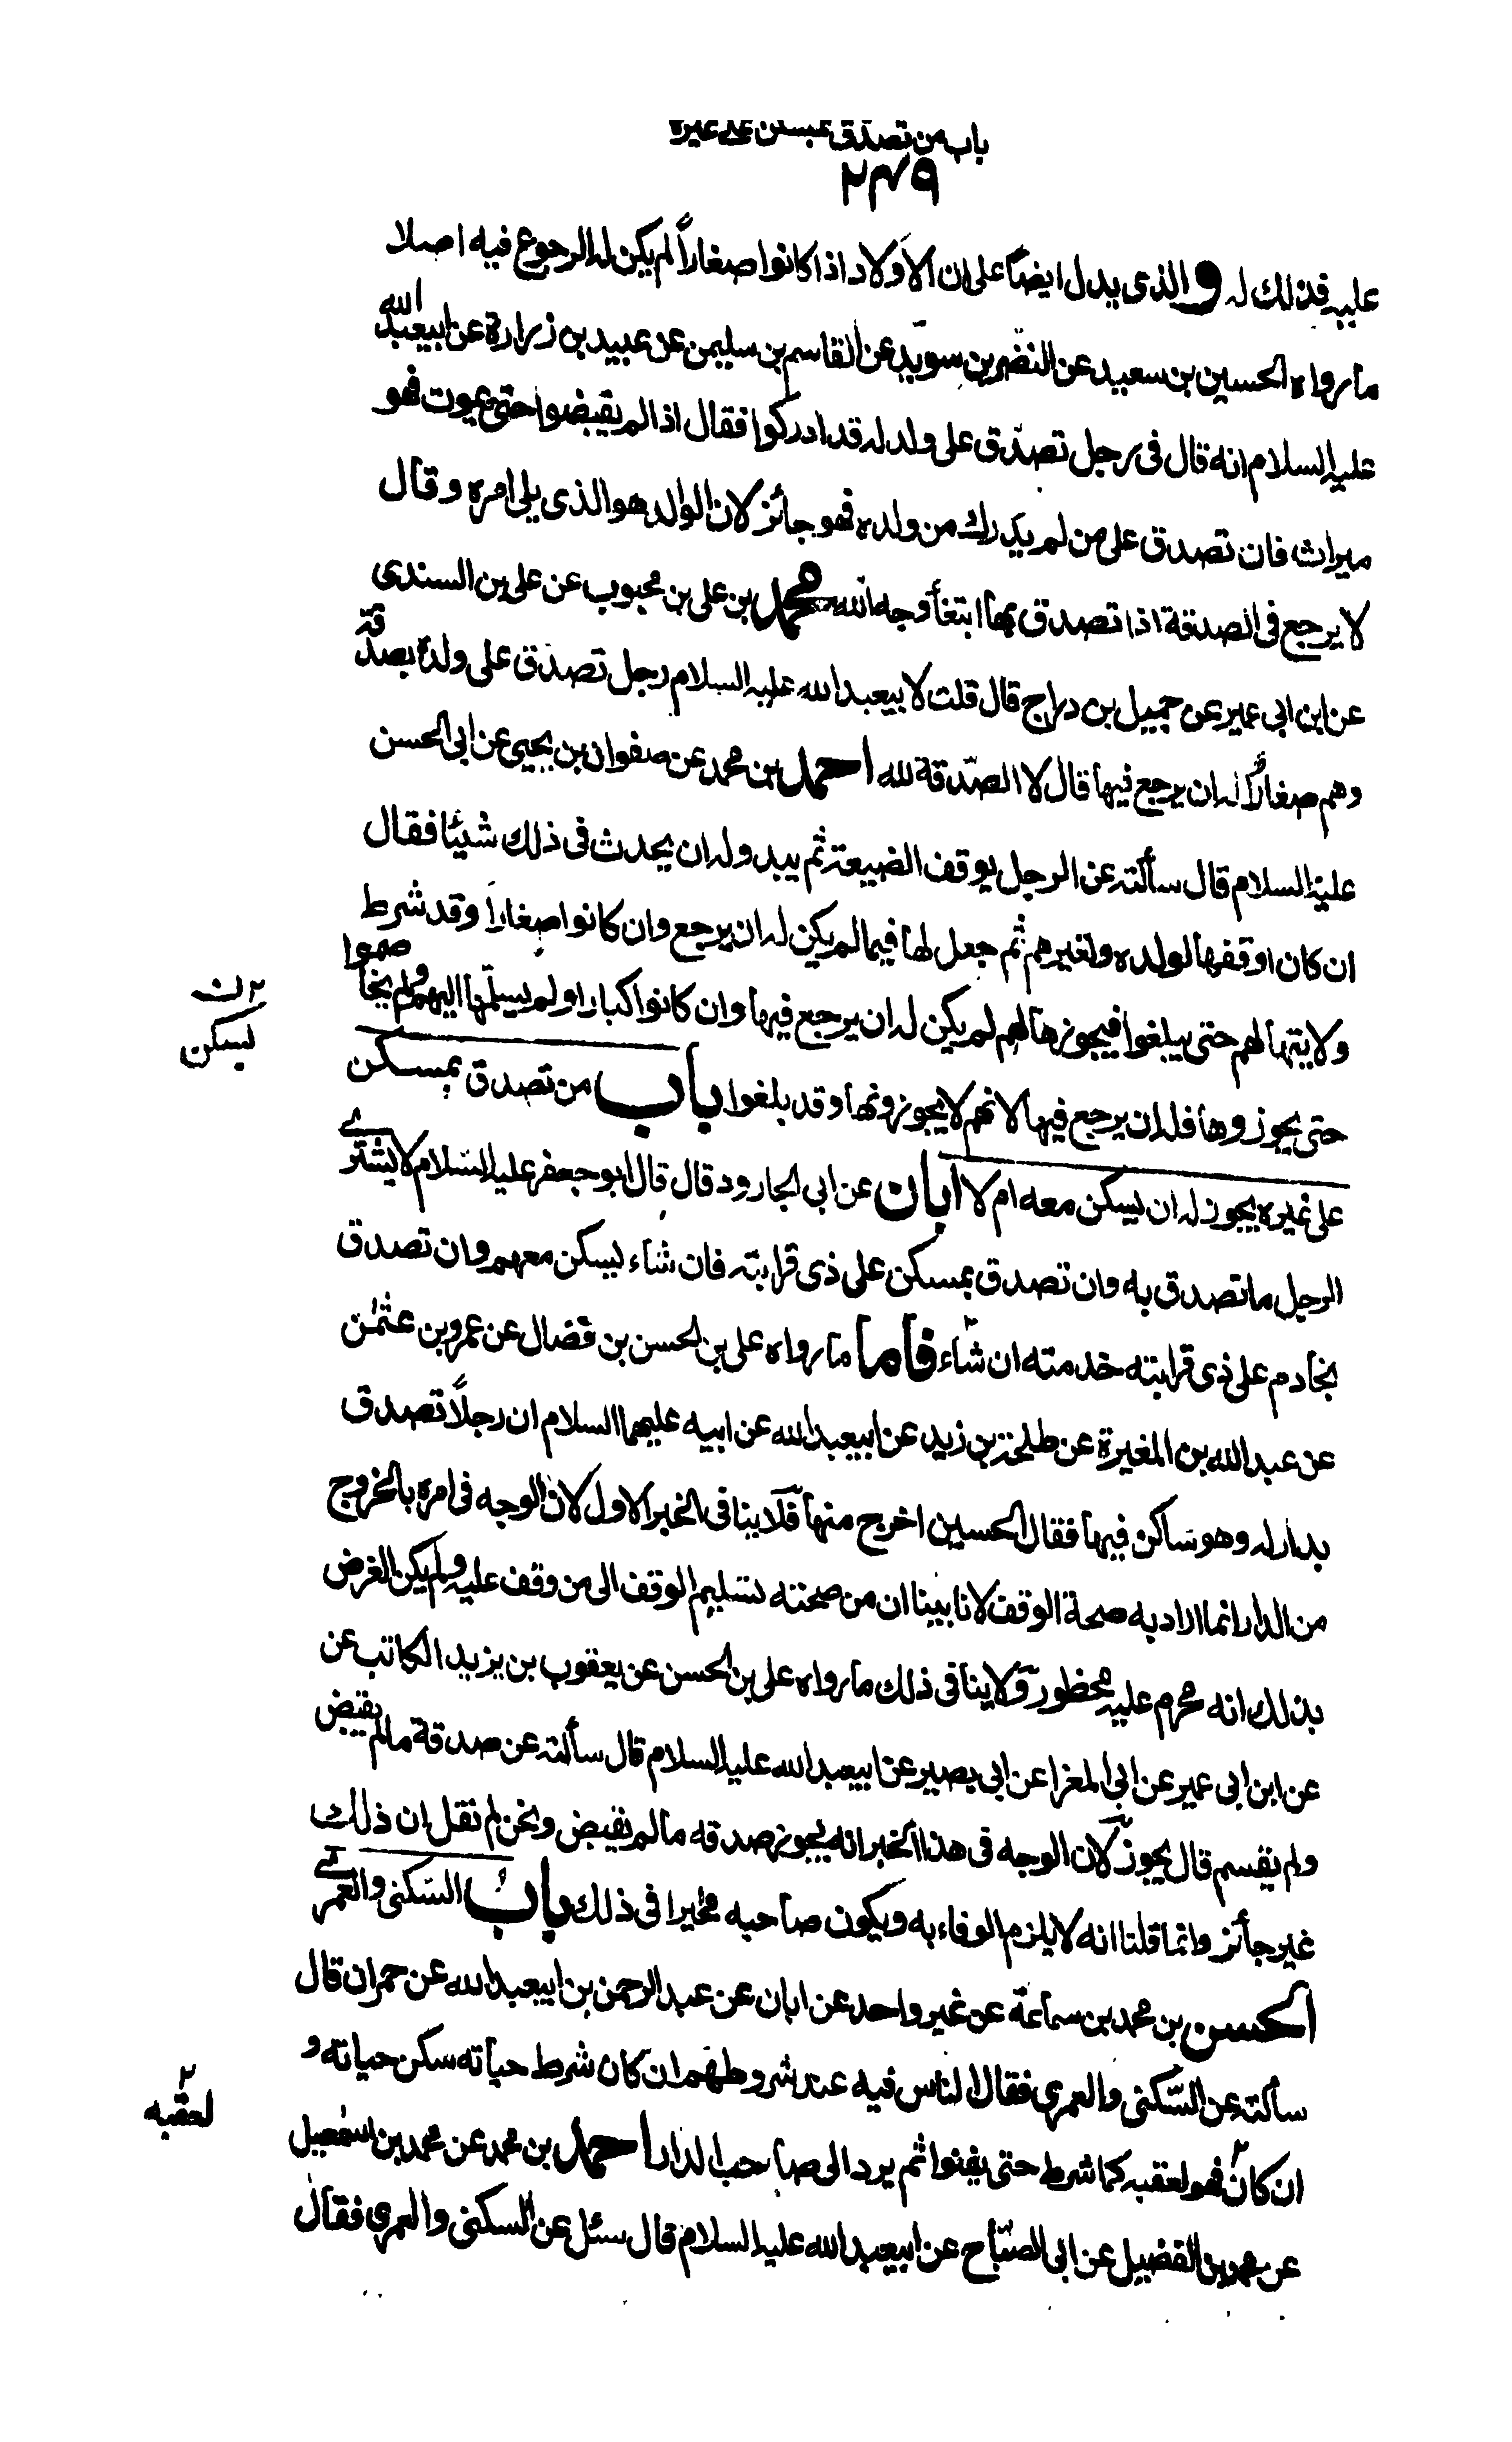 باب من تصدق بمسكن على غيره
٢٤٩
عليه فذلك له والذي يدل ايضا على ان الاولاد اذا كانوا صغاراً لم يكن له الرجوع فيه اصلا
ما رواه الحسين بن سعيد عن النضر بن سويد عن القاسم بن سليمن عن عبيد بن زرارة عن ابيعبد الله
عليه السلام انه قال فى رجل تصدّق على ولد له قد ادركوا فقال اذا لم يقبضوا حتى يموت فهو
ميراث فان تصدق على من لم يدرك من ولده فهو جائز لان الوالد هو الذى يلى امره وقال
لا يرجع فى الصدقة اذا تصدق بها ابتغاء وجه الله محمد بن على بن محبوب عن على بن السندى
عن ابن ابى عمير عن جميل بن دراج قال قلت لابيعبد الله عليه السلام رجل تصدّق على ولده بصدقة
وهم صغارٌ اله ان يرجع فيها قال لا الصّدقة لله احمد بن محمد عن صفوان بن يحيى عن ابى الحسن
عليه السلام قال سألته عن الرجل يوقف الضيعة ثم يبدو له ان يحدث فى ذلك شيئا فقال
ان كان اوقفها لولده ولغيرهم ثم جعل لها قيما لم يكن له ان يرجع وان كانوا صغارا وقد شرط
ولايتها لهم حتى يبلغوا فيحوزها لهم لم يكن له ان يرجع فيها وان كانوا كبارا ولم يسلّمها اليهم ولم يخاصموا
حتى يحوزوها فله ان يرجع فيها لانهم لا يحوزونها وقد بلغوا باب من تصدق بمسكن
على غيره يجوز له ان يسكن معه ام لا ابان عن ابى الجارود قال قال ابو جعفر عليه السلام لا يشترى
الرجل ما تصدق به وان تصدق بمسكن على ذى قرابته فان شاء يسكن معهم وان تصدق
بخادم على ذى قرابته خدمته ان شاء فاما ما رواه على بن الحسن بن فضال عن عمرو بن عثمن
عن عبد الله بن المغيرة عن طلحة بن زيد عن ابيعبد الله عن ابيه عليهما السلام ان رجلاً تصدق
بدار له وهو ساكن فيها فقال الحسين اخرج منها فلا ينافى الخبر الاول لان الوجه فى امره بالخروج
من الدار انما اراد به صحة الوقف لانا بينا ان من صحته تسليم الوقف الى من وقف عليه ولم يكن الغرض
بذلك انه محرم عليه محظور ولا ينافى ذلك ما رواه على بن الحسن عن يعقوب بن يزيد الكاتب عن
عن ابن ابى عمير عن ابى المغرا عن ابى بصير عن ابيعبد الله عليه السلام قال سألته عن صدقة ما لم يقبض
ولم يقسم قال يجوز لان الوجه فى هذا الخبر انه يجوز صدقه ما لم يقبض ونحن لم نقل ان ذلك
غير جائز وانما قلنا انه لا يلزم الوفاء به ويكون صاحبه مخيرا فى ذلك باب السكنى والعمرى
الحسن بن محمد بن سماعة عن غير واحد عن ابان عن عبد الرحمن بن ابيعبد الله عن حمران قال
سألته عن السّكنى والعمرى فقال الناس فيه عند شروطهم ان كان شرط حياته سكن حياته و
ان كان فهو لعقبه كما شرط حتى يفنوا ثم يرد الى صاحب الدار احمد بن محمد عن محمد بن اسمعيل
عن محمد بن الفضيل عن ابى الصّبّاح عن ابيعبد الله عليه السلام قال سئل عن السكنى والعمرى فقال
ليسكن
لعقبه